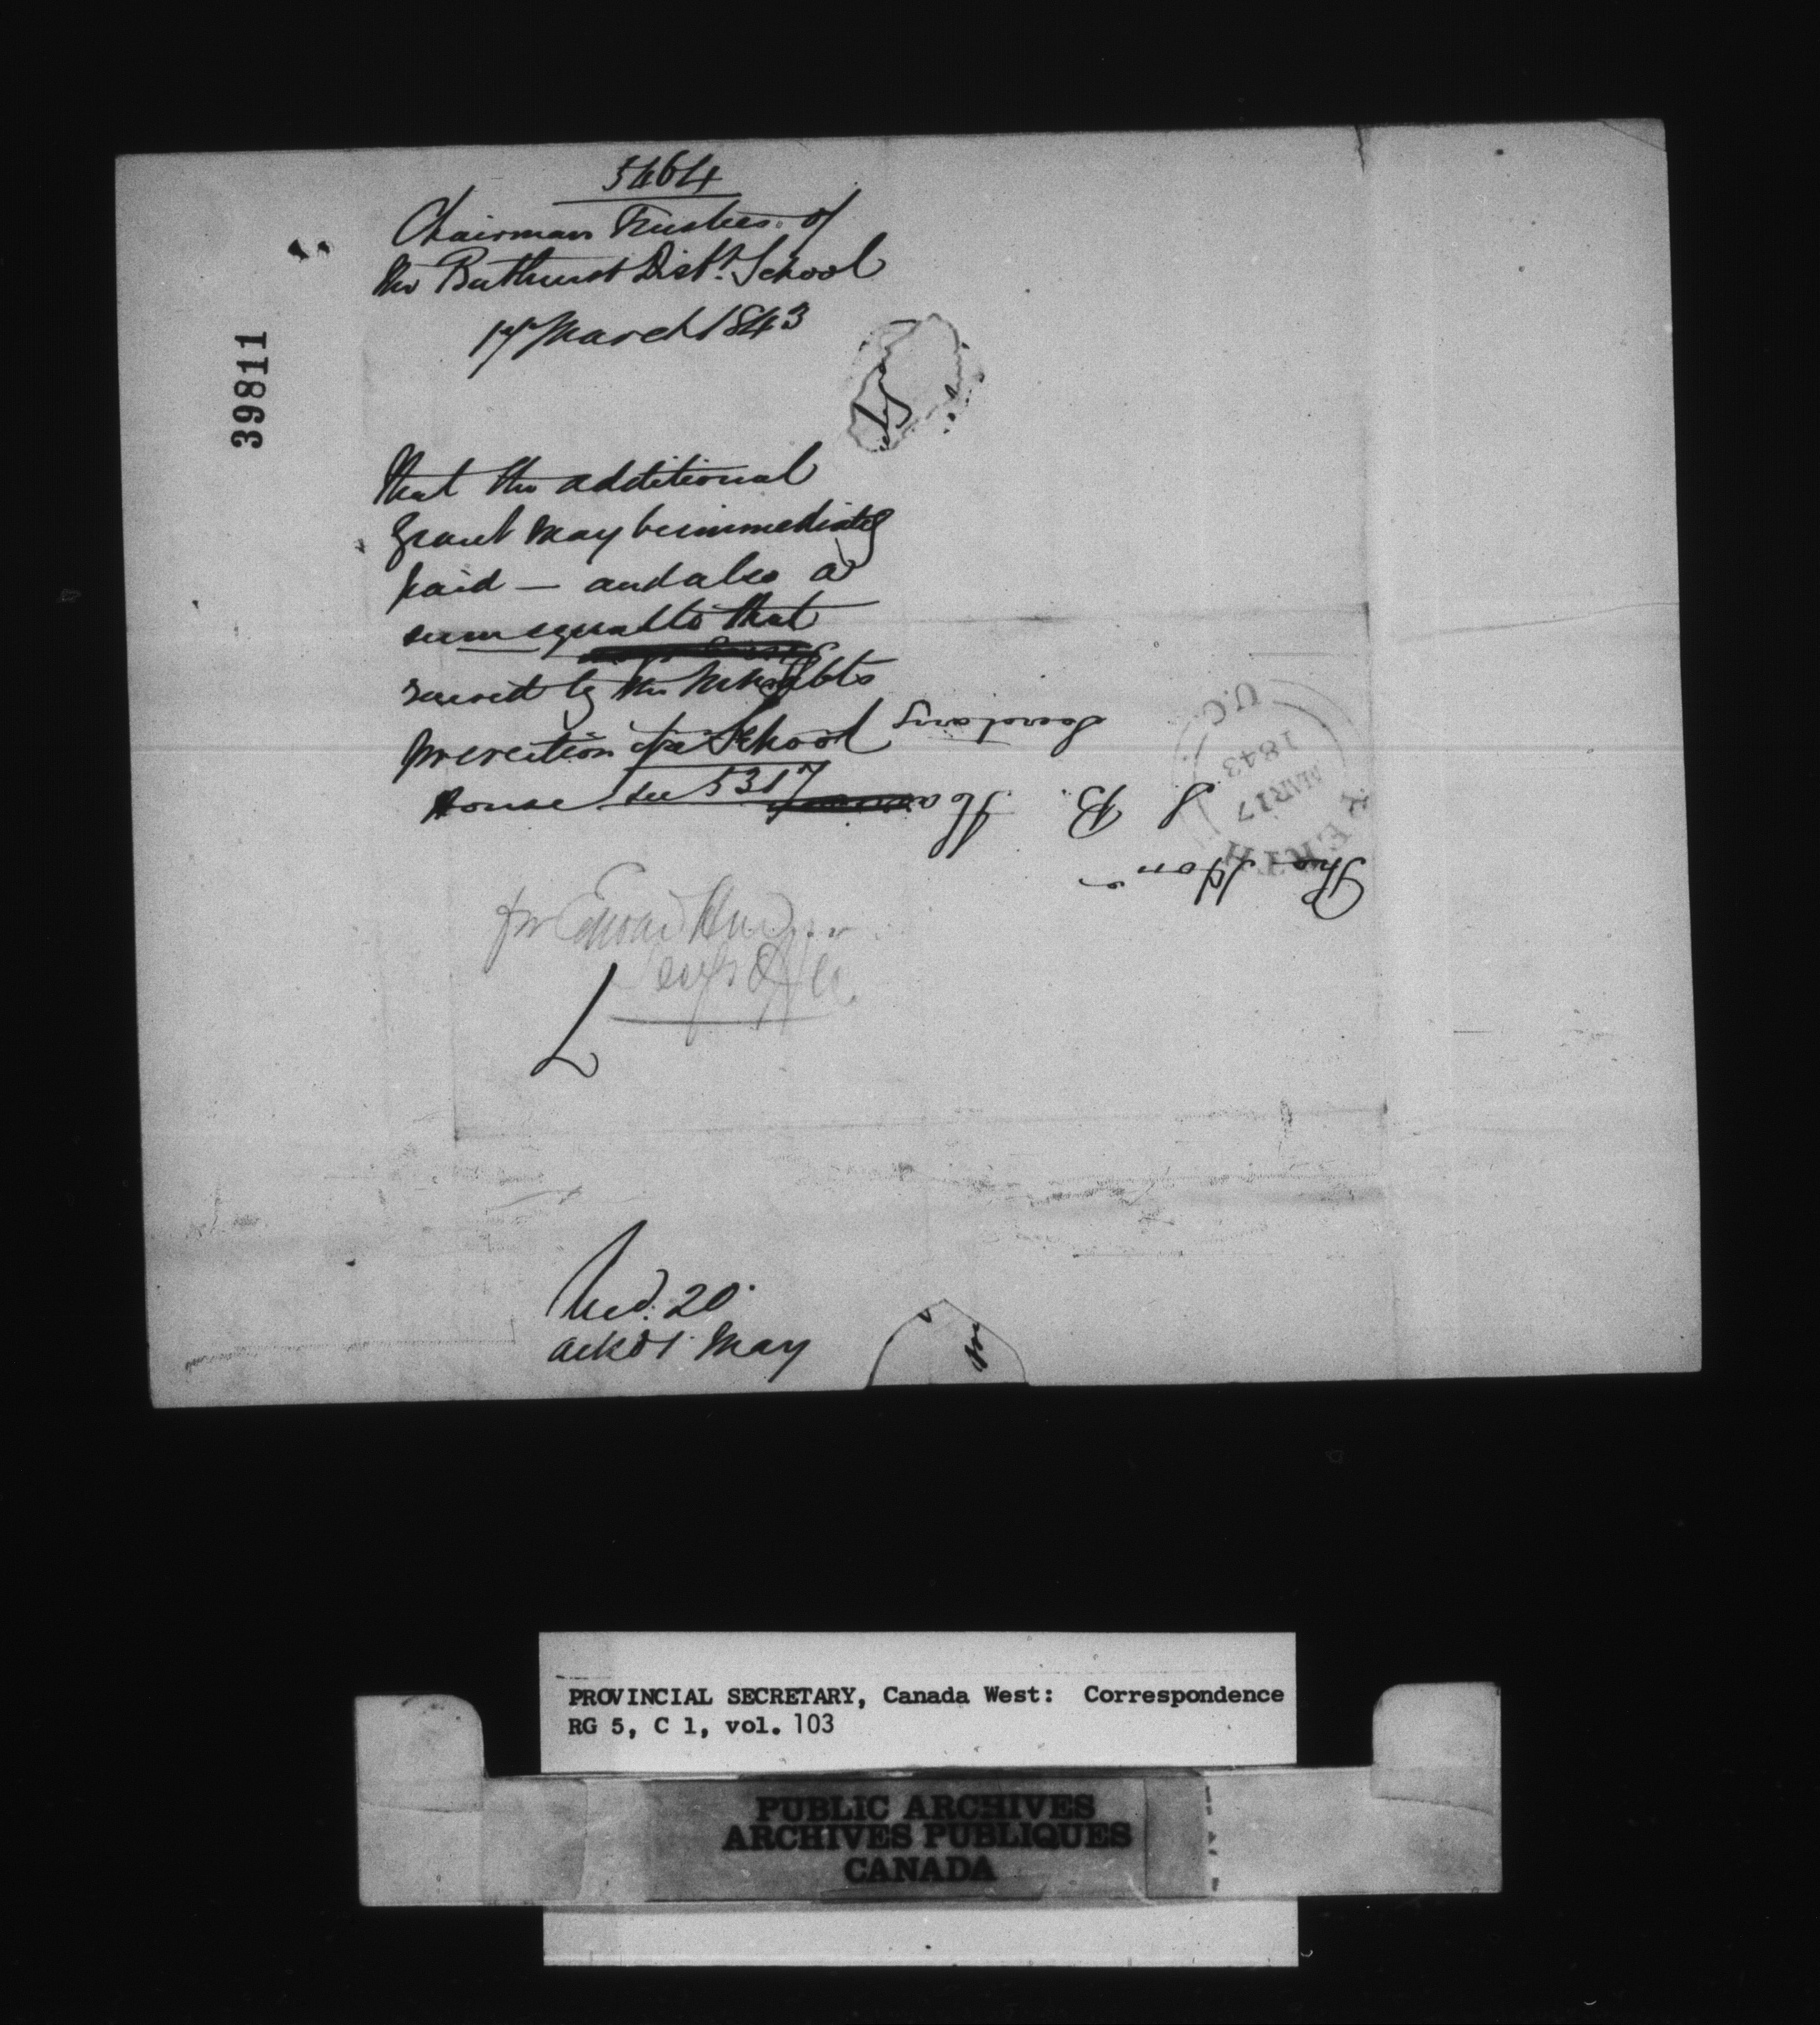 5464
Chairman Trustees of
the Bathurst Dist. School
17 March 1843
39811
That the additional
Grant may be immediately
paid — and also a
sum equal to that
by the
for erection of a School
House see 5317
The Hon
S B Ha
Secretary
PERTH
MAR 17
1843
U.C.
for
L
Recd. 20
ackd 1 May
PROVINCIAL SECRETARY, Canada West: Correspondence
RG 5, C 1, vol. 103
PUBLIC ARCHIVES
ARCHIVES PUBLIQUES
CANADA